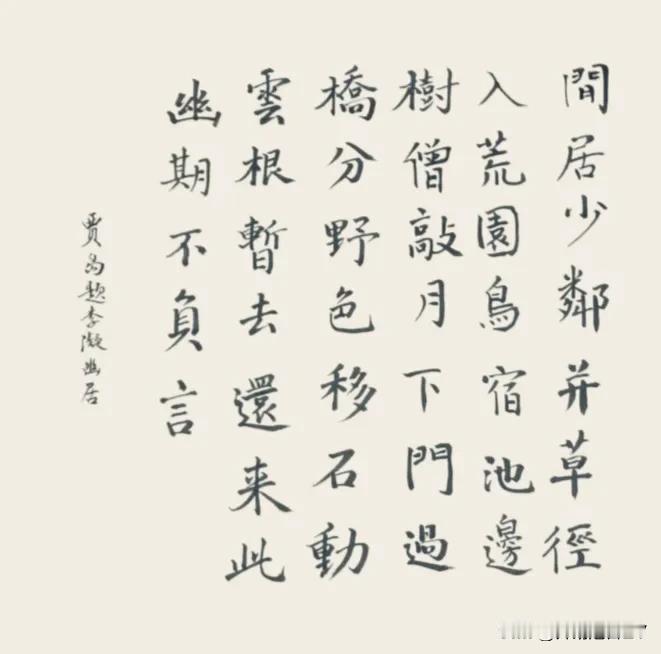 閒居少鄰并草徑
入荒園鳥宿池邊
樹僧敲月下門過
橋分野色移石動
雲根暫去還来此
幽期不負言
賈島題李凝幽居